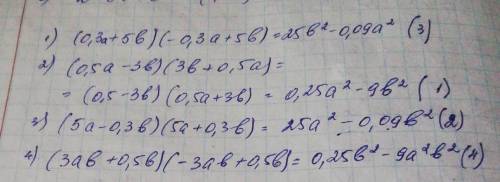 1) (0,3a+5b)(-0,3a+5b)=25b²-0,09a² (3)
2) (0,5a-3b)(3b+0,5a)=
= (0,5-3b)(0,5a+3b)= 0,25a²-9b² (1)
3) (5a-0,3b)(5a+0,3b)= 25a²-0,09b² (2)
4) (3ab+0,5b)(-3ab+0,5b)=0,25b²-9a²b² (4)